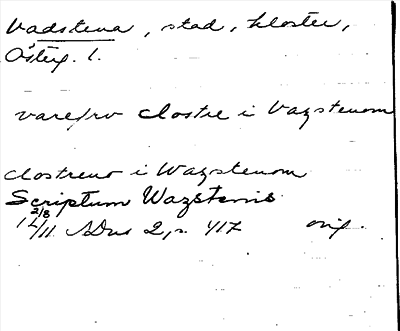 Vadstena, stad, kloster,
Österg. l.
varefrv clostre i Vazstenom
clostreno i Wazstenom
Scriptum Wazstenis
2/8
12/11 SDns 2, s. 417 orig.